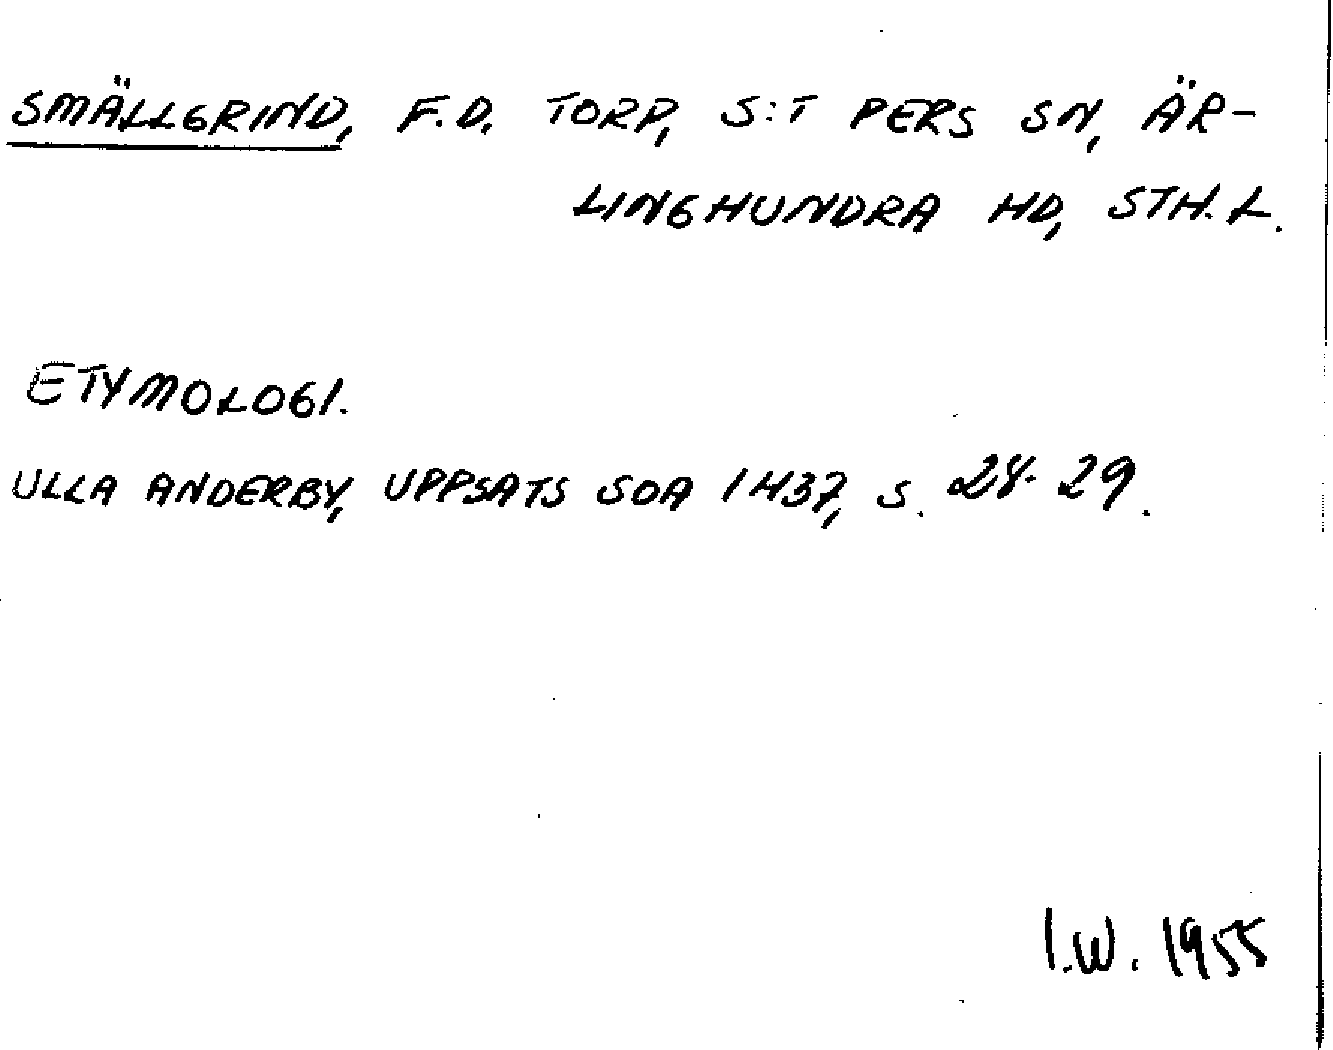 SMÄLLGRIND, F.D. TORP, S:T PERS SN, ÄR-
LINGHUNDRA HD, STH.L.
ETYMOLOGI.
ULLA ANDERBY, UPPSATS SOA 1437, S. 28-29.
I.W. 1955